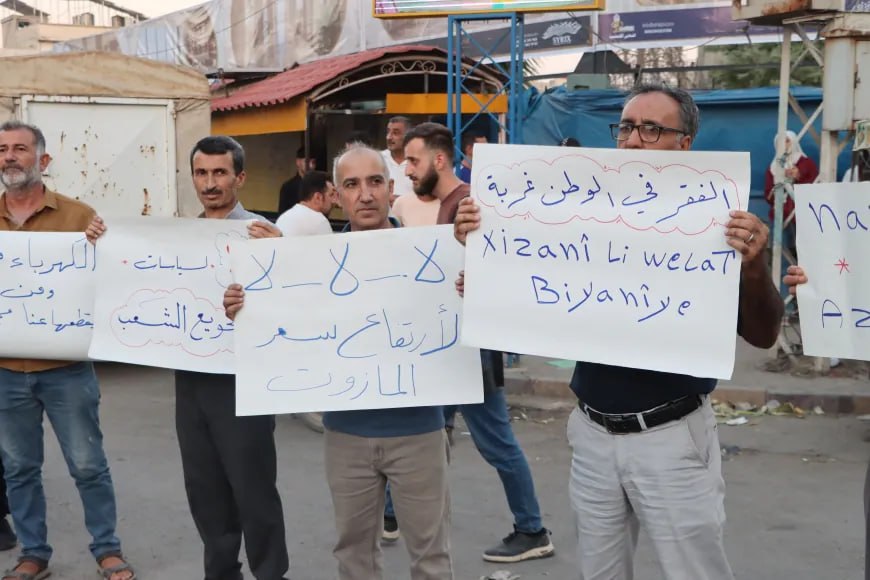 الكهرباء
ومن
لسياسات *
تجويع الشعب
لا _ لا _ لا
لأرتقاع سعر
المازوت
الفقر في الوطن غربة
Xizanî Li weLat
Biyanîye